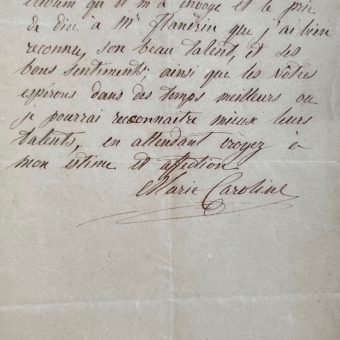 qu'il m'a envoyé et le prie
de dire à Mr Flandrin que j'ai bien
reconnu, son beau talent, et ses
bons sentiments, ainsi que les vôtres
espérons dans des temps meilleurs ou
je pourrai reconnaitre mieux leurs
talents, en attendant croyez à
mon estime et affection
Marie Caroline